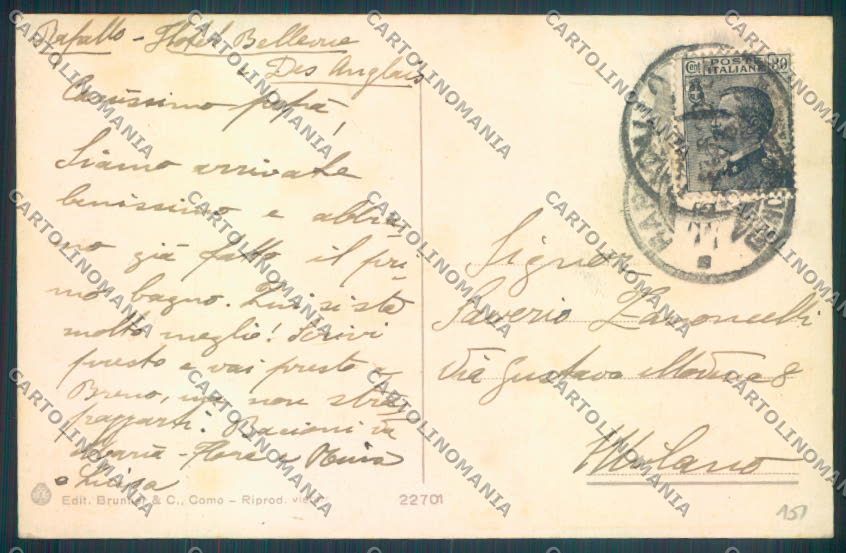 Rapallo - Hotel Bellevue
Des Anglais
Carissimo papà,
Siamo arrivate
benissimo e abbia-
mo già fatto il pri-
mo bagno. Qui si sta
molto meglio! Scrivi
presto e vai presto a
Breno, ma non stra-
pazzarti. Bacioni da
Maria - Flora e
e Luisa
Edit. Brunner & C., Como - Riprod. viet.
22701
Cent. POSTE ITALIANE 30
Signor
Saverio
Via Gustavo Modena 8
Milano
151
CARTOLINOMANIA